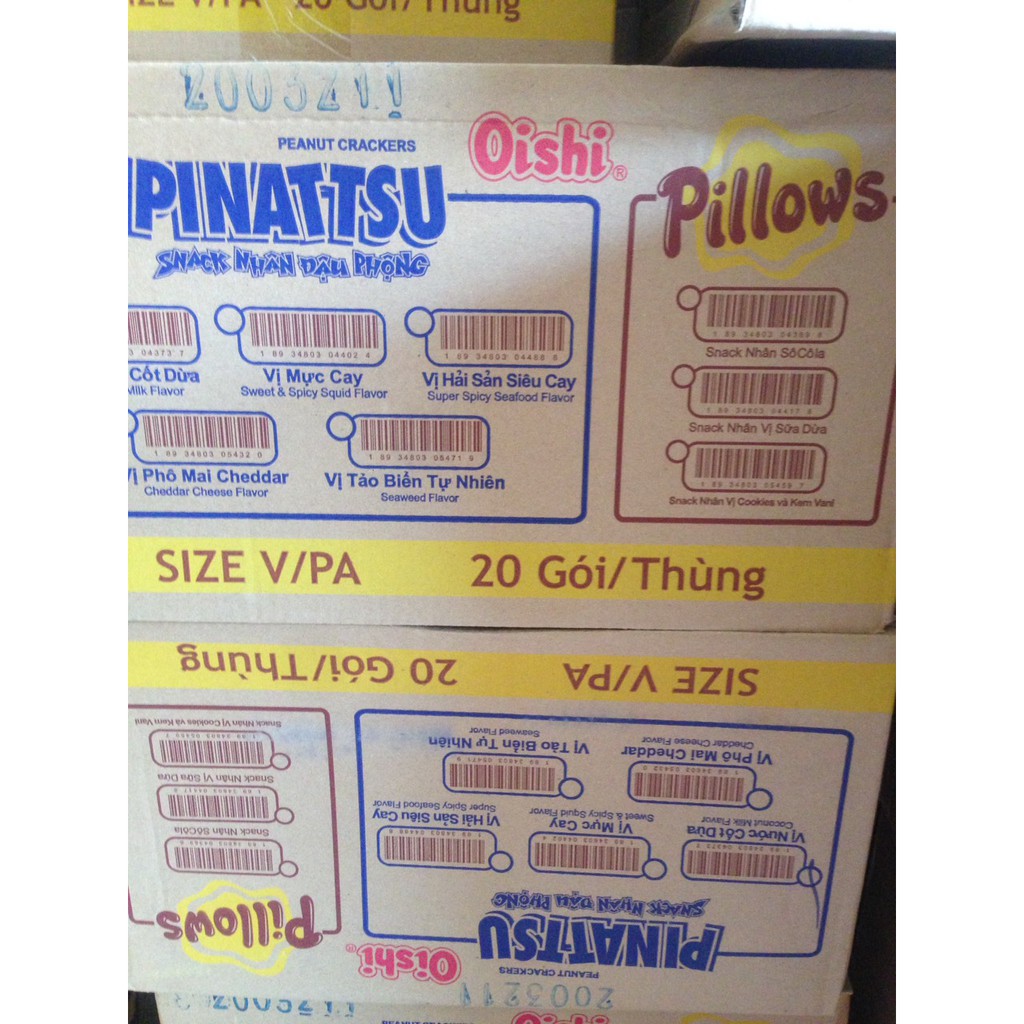 SIZE V/PA 20 Gói/Thùng
2003211
PEANUT CRACKERS
Oishi®
PINATTSU
SNACK NHÂN ĐẬU PHỘNG
Pillows
3 04373 7
1 89 34803 04402 4
Cốt Dừa
Milk Flavor
Vị Mực Cay
Sweet & Spicy Squid Flavor
Vị Hải Sản Siêu Cay
Super Spicy Seafood Flavor
1 89 34803 05432 0
1 89 34803 05471 9
Vị Phô Mai Cheddar
Cheddar Cheese Flavor
Vị Tảo Biển Tự Nhiên
Seaweed Flavor
Snack Nhân SôCôla
Snack Nhân Vị Sữa Dừa
Snack Nhân Vị Cookies và Kem Vani
SIZE V/PA 20 Gói/Thùng
SIZE V/PA 20 Gói/Thùng
Vị Phô Mai Cheddar
Cheddar Cheese Flavor
Vị Tảo Biển Tự Nhiên
Seaweed Flavor
Snack Nhân Vị Cookies và Kem Vani
Vị Nước Cốt Dừa
Coconut Milk Flavor
Vị Mực Cay
Sweet & Spicy Squid Flavor
Vị Hải Sản Siêu Cay
Super Spicy Seafood Flavor
Snack Nhân Vị Sữa Dừa
Snack Nhân SôCôla
PINATTSU
SNACK NHÂN ĐẬU PHỘNG
PEANUT CRACKERS
Oishi®
Pillows
2003211
2003211